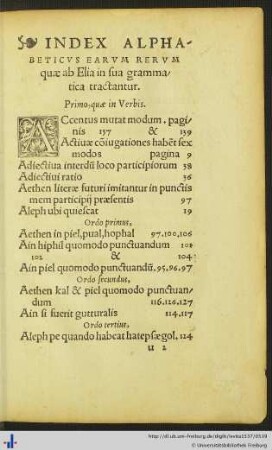 INDEX ALPHA-
BETICVS EARVM RERVM
quæ ab Elia in sua gramma
tica tractantur.
Primo, quæ in Verbis.
ACcentus mutat modum, pagi-
nis 137 & 139
Actiuæ cōiugationes habēt sex
modos pagina 9
Adiectiua interdū loco participiorum 38
Adiectiui ratio 36
Aethen literæ futuri imitantur in punctis
mem participij præsentis 97
Aleph ubi quiescat 19
Ordo primus,
Aethen in piel, pual, hophal 97.100,106
Ain hiphil quomodo punctuandum 101
102 & 104
Ain piel quomodo punctuandū. 95.96.97
Ordo secundus,
Aethen kal & piel quomodo punctuan-
dum 116.126,127
Ain si fuerit gutturalis 114,117
Ordo tertius,
Aleph pe quando habeat hatepsægol, 124
u 2
http://dl.ub.uni-freiburg.de/diglit/levita1537/0319
© Universitätsbibliothek Freiburg